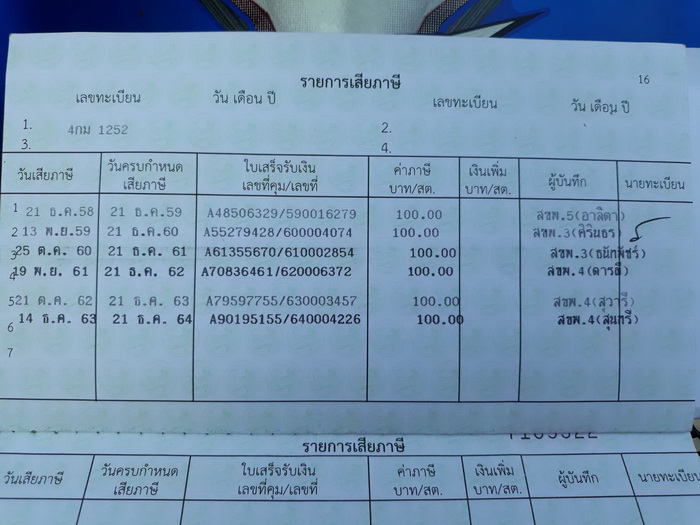 รายการเสียภาษี
16
เลขทะเบียน วัน เดือน ปี เลขทะเบียน วัน เดือน ปี
1. 4กม 1252 2.
3. 4.
วันเสียภาษี วันครบกำหนดเสียภาษี ใบเสร็จรับเงิน เลขที่คุม/เลขที่ ค่าภาษี บาท/สต. เงินเพิ่ม บาท/สต. ผู้บันทึก นายทะเบียน
1 21 ธ.ค.58 21 ธ.ค.59 A48506329/590016279 100.00 สขพ.5(อาลิตา)
2 13 พ.ย.59 21 ธ.ค.60 A55279428/600004074 100.00 สขพ.3(ศิรินธร)
3 25 ต.ค. 60 21 ธ.ค. 61 A61355670/610002854 100.00 สขพ.3(ธนัทพัชร์)
4 9 พ.ย. 61 21 ธ.ค. 62 A70836461/620006372 100.00 สขพ.4(ดารณี)
5 21 ต.ค. 62 21 ธ.ค. 63 A79597755/630003457 100.00 สขพ.4(สุวารี)
6 14 ธ.ค. 63 21 ธ.ค. 64 A90195155/640004226 100.00 สขพ.4(สุนทรี)
7
รายการเสียภาษี
วันเสียภาษี วันครบกำหนดเสียภาษี ใบเสร็จรับเงิน เลขที่คุม/เลขที่ ค่าภาษี บาท/สต. เงินเพิ่ม บาท/สต. ผู้บันทึก นายทะเบียน